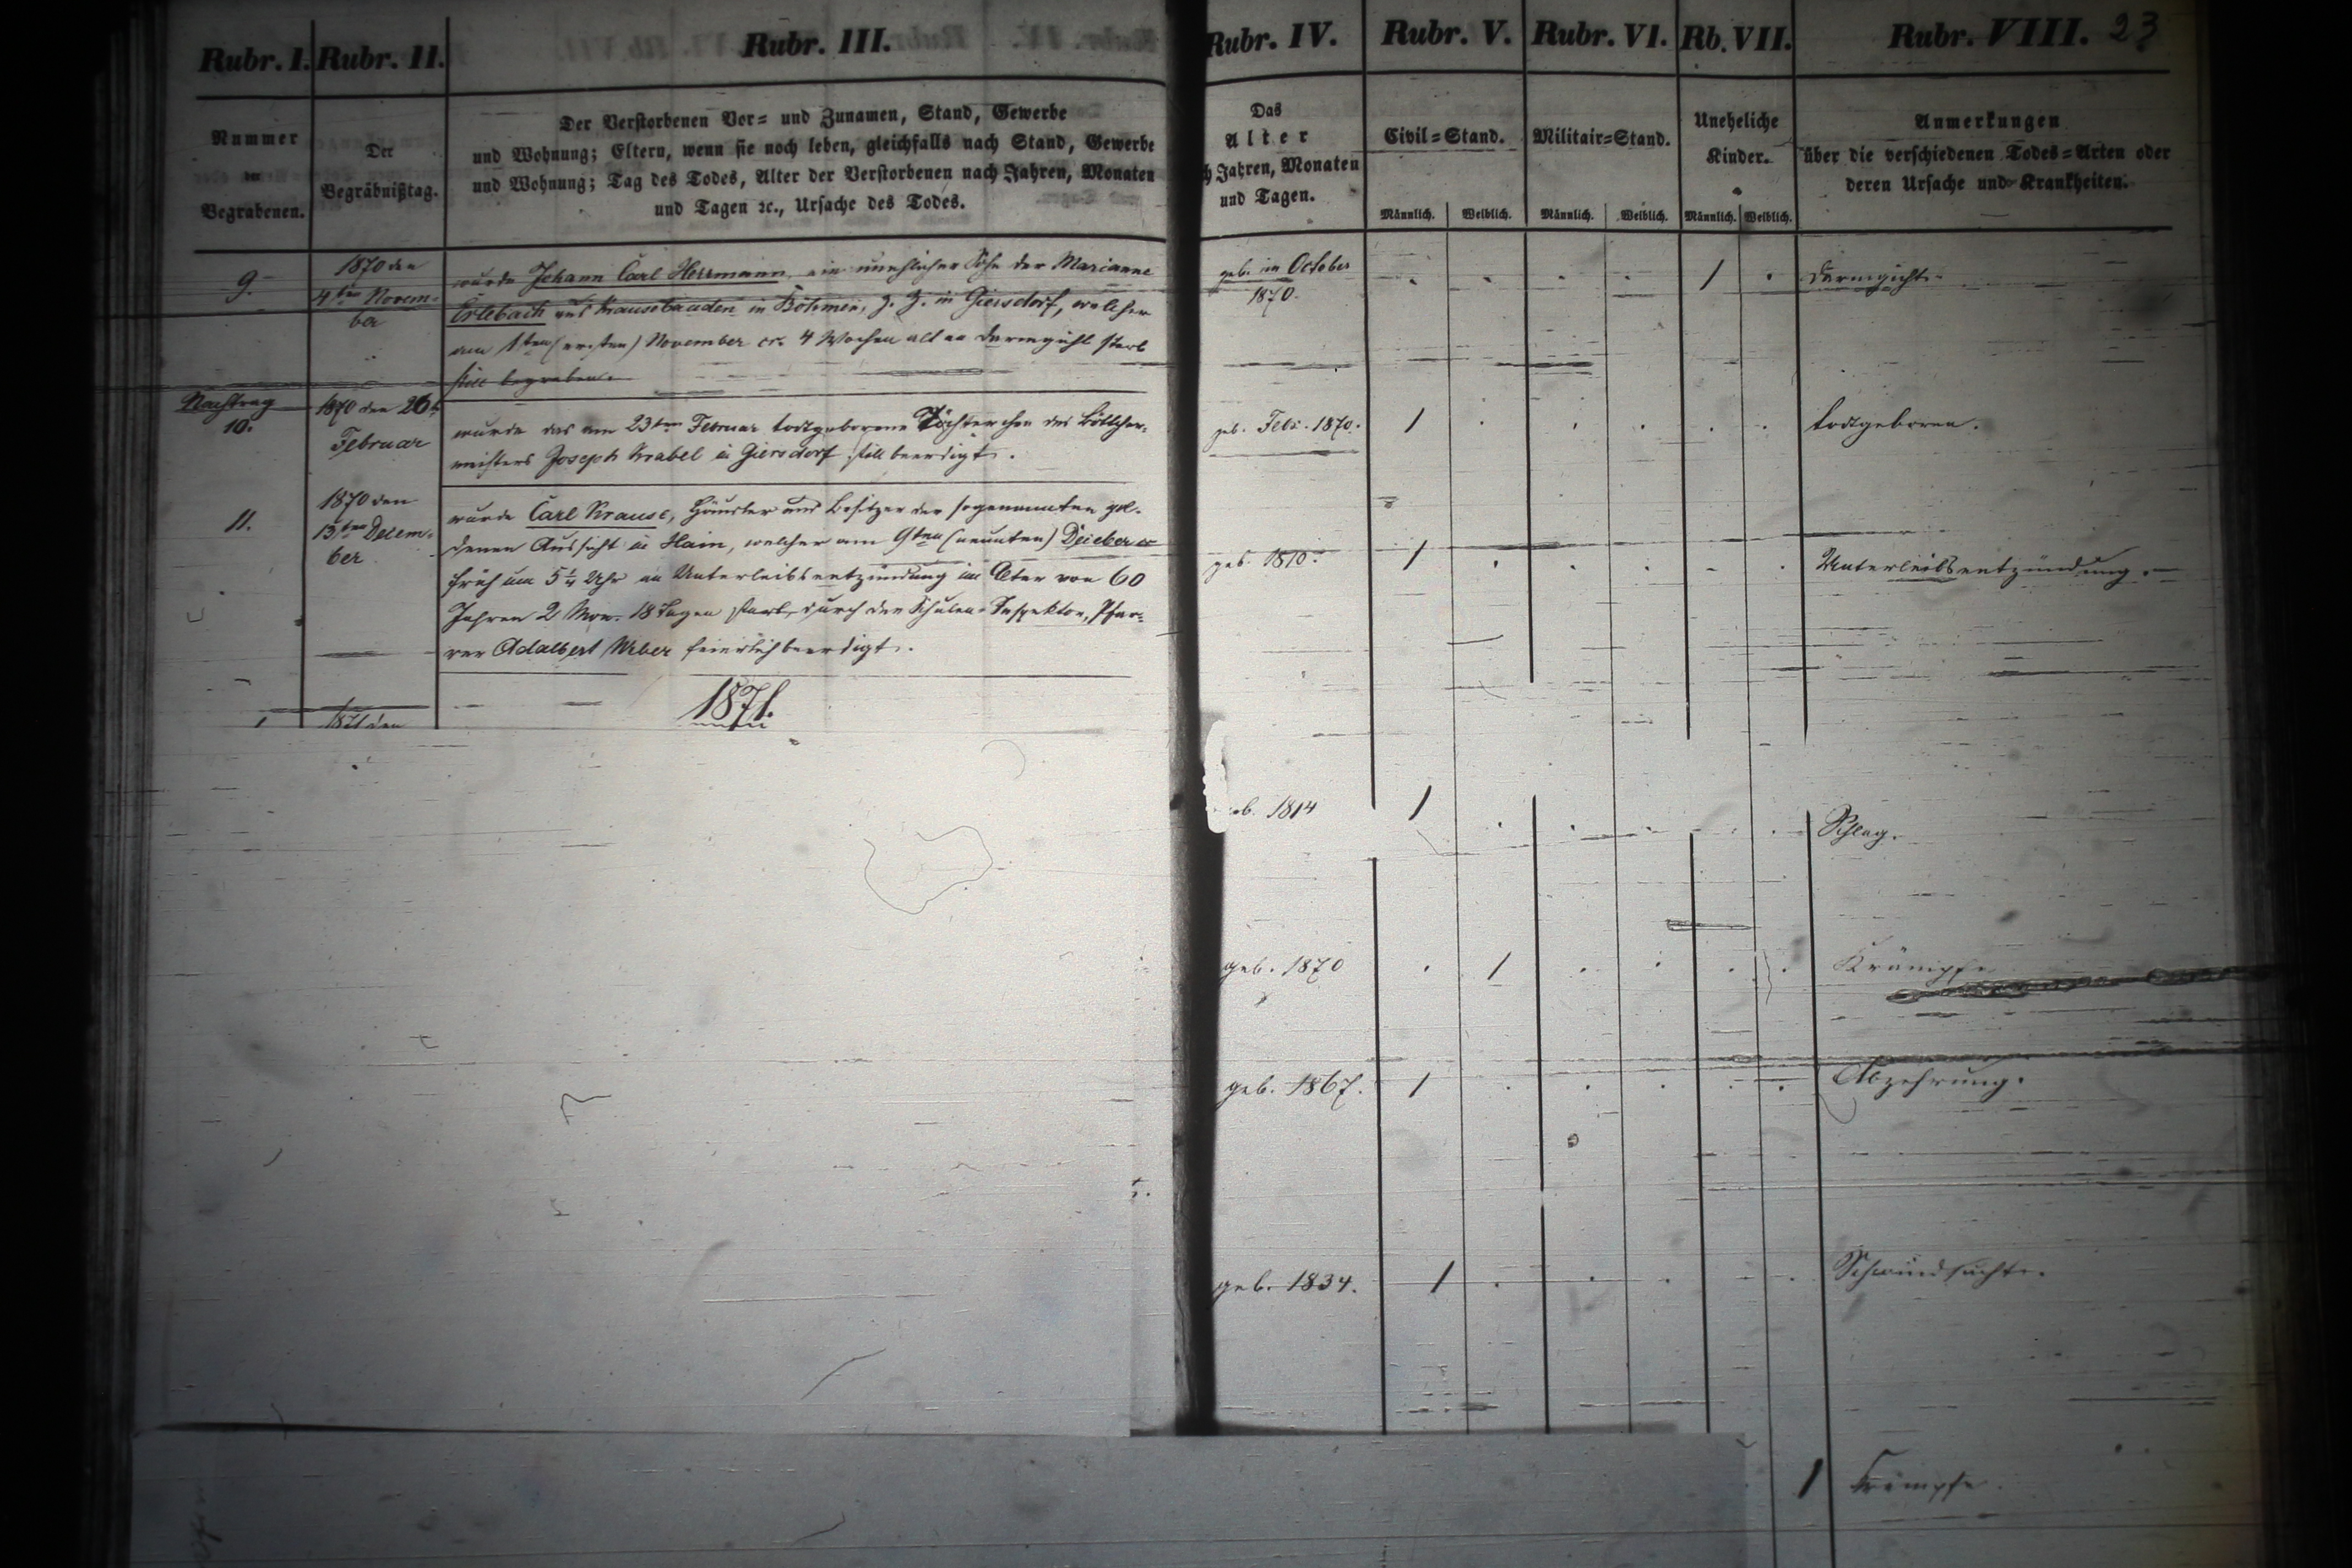 Rubr. I. Rubr. II. Rubr. III. Rubr. IV. Rubr. V. Rubr. VI. Rb. VII. Rubr. VIII. 23
Nummer
der
Begrabenen.
Der
Begräbnißtag.
Der Verstorbenen Vor= und Zunamen, Stand, Gewerbe
und Wohnung; Eltern, wenn sie noch leben, gleichfalls nach Stand, Gewerbe
und Wohnung; Tag des Todes, Alter der Verstorbenen nach Jahren, Monaten
und Tagen ꝛc., Ursache des Todes.
Das
Alter
h Jahren, Monaten
und Tagen.
Civil=Stand.
Männlich. Weiblich.
Militair=Stand.
Männlich. Weiblich.
Uneheliche
Kinder.
Männlich. Weiblich.
Anmerkungen
über die verschiedenen Todes=Arten oder
deren Ursache und Krankheiten.
9.
1870 den
4ten Novem-
ber
wurde Johann Carl Herrmann, ein unehlicher Sohn der Marianne
Erlebach aus Krausebauden in Böhmen, z. Z. in Giersdorf, welcher
am 1ten (ersten) November cr. 4 Wochen alt an Darmgicht starb
still begraben.
geb. im October
1870.
1
Darmgicht.
Nachtrag
10.
1870 den 26t
Februar
wurde das am 23ten Februar todtgeborene Töchterchen des Böttcher-
meisters Joseph Krabel in Giersdorf still beerdigt.
geb. Febr. 1870.
1
todtgeboren.
11.
1870 den
13ten Decem-
ber
wurde Carl Krause, Häusler und Besitzer der sogenannten gol-
denen Aussicht in Hain, welcher am 9ten (neunten) cr
früh um 5¼ Uhr an Unterleibsentzündung im Alter von 60
Jahren 2 Mon. 18 Tagen starb, durch den Schulen-Inspektor, Pfar-
rer Adalbert feierlich beerdigt.
geb. 1810.
1
Unterleibsentzündung.
1871.
1871 den
eb. 1814
1
Schlag.
geb. 1870
1
Krämpfe
geb. 1867.
1
Abzehrung.
geb. 1834.
1
Schwindsucht.
1
Krämpfe.